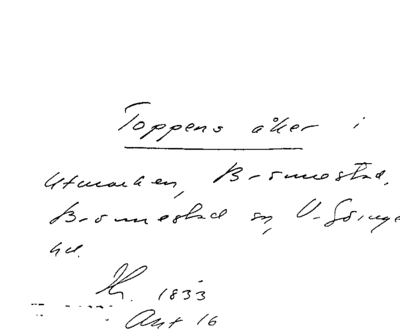 Toppens åker i
Utmarken, Brönnestad,
Brönnestad sn, V. Göinge
hd.
H. 1833
Akt 16